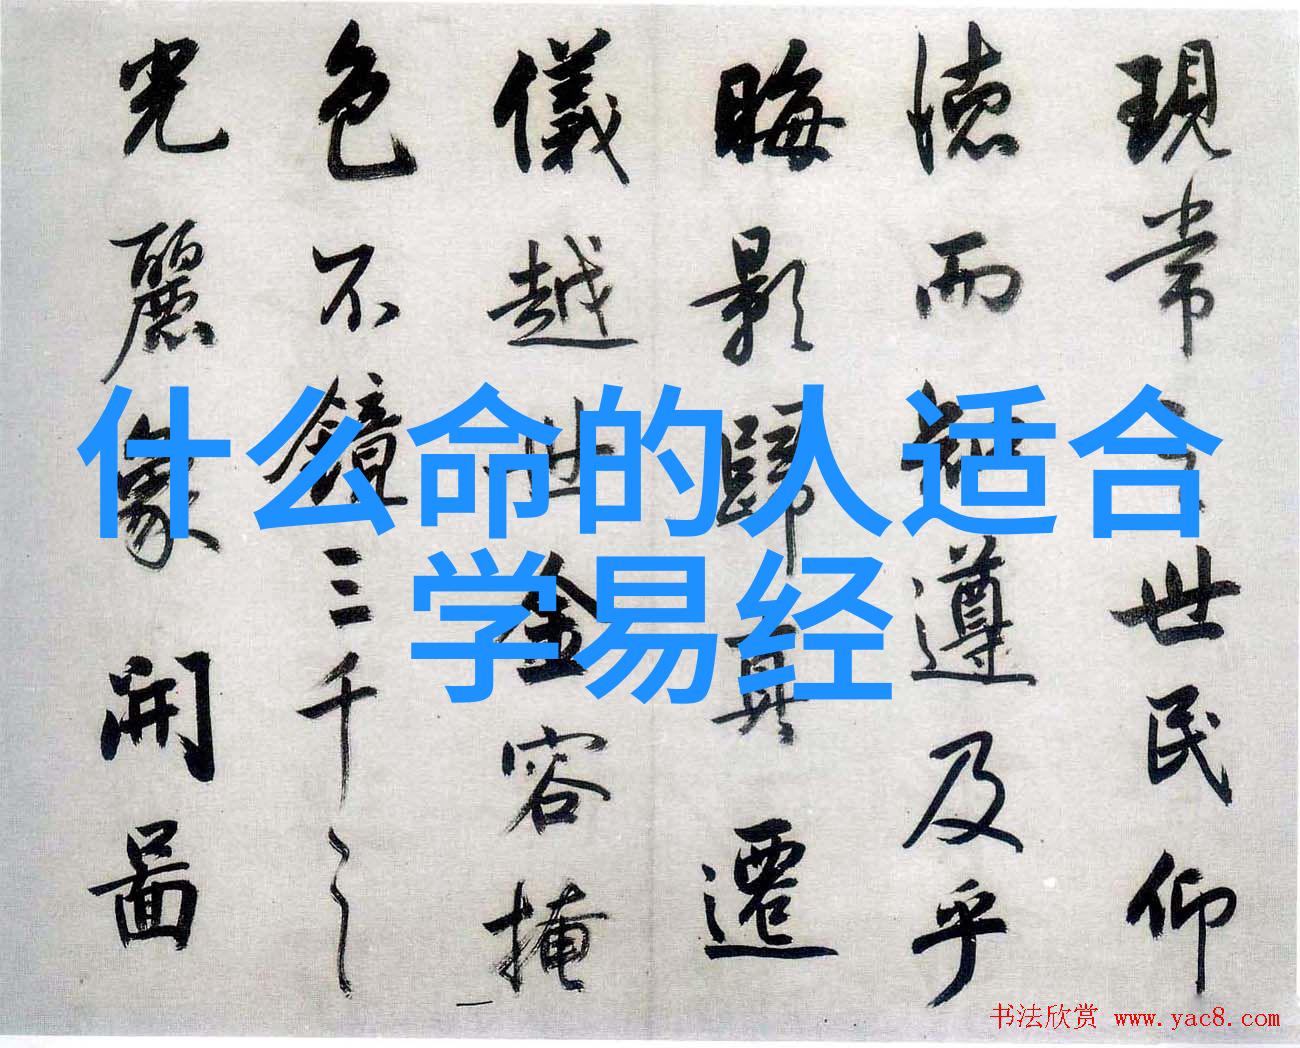 什么命的人适合
学易经
現常之世民仰
德而知遵及乎
晦影歸真遷
儀越世金容掩
色不鏡三千之
光麗象開圖
书法欣赏 www.yac8.com